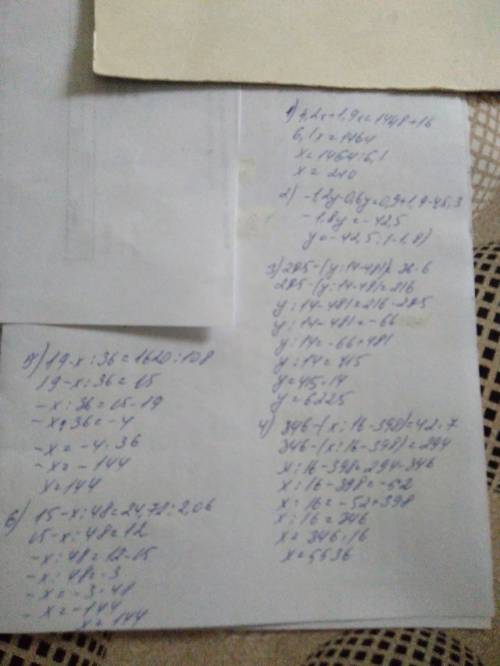 1) 4,2x+1,9x=1448+16
6,1x=1464
x=1464:6,1
x=240
2) -1,2y-0,6y=0,9+1,9-45,3
-1,8y=-42,5
y=-42,5:(-1,8)
3) 285-(y:14-481)=36·6
285-(y:14-481)=216
y:14-481=216-285
y:14-481=-66
y:14=-66+481
y:14=415
y=415·14
y=6225
4) 346-(x:16-398)=42·7
346-(x:16-398)=294
x:16-398=294-346
x:16-398=-52
x:16=-52+398
x:16=346
x=346·16
x=5536
5) 19-x:36=1620:108
19-x:36=15
-x:36=15-19
-x:36=-4
-x=-4·36
-x=-144
x=144
6) 15-x:48=24,72:2,06
15-x:48=12
-x:48=12-15
-x:48=-3
-x=-3·48
-x=-144
x=144